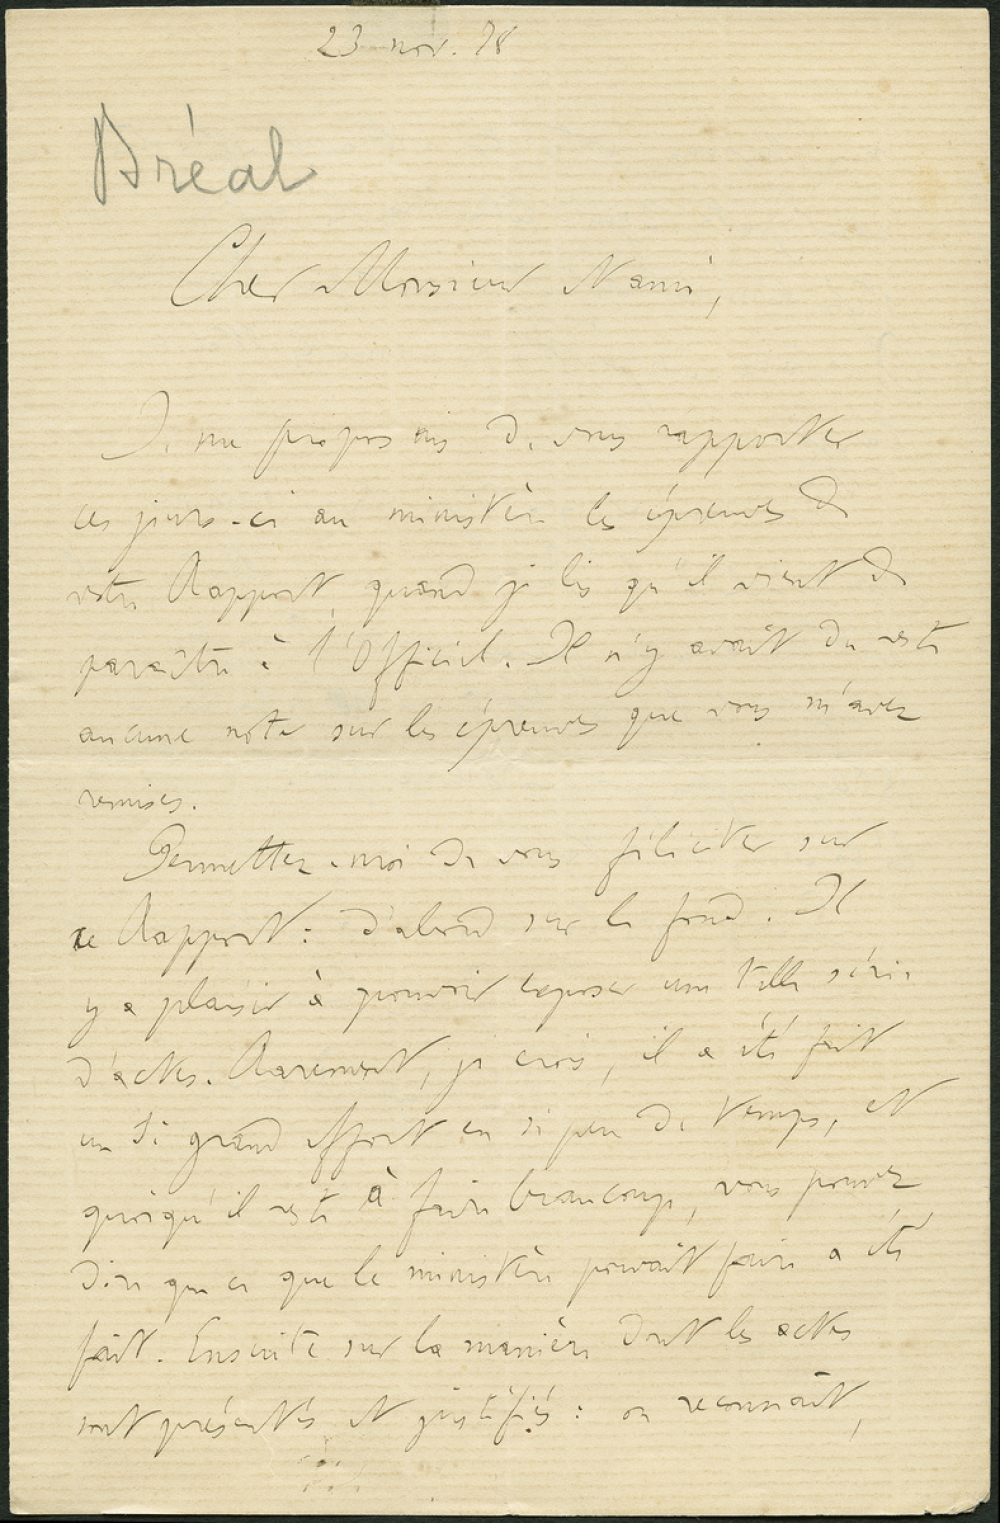 23 nov. 78
Bréal
Cher Monsieur Nanni,
Je me proposais de vous rapporter
ces jours-ci au ministère les épreuves de
votre Rapport, quand je lis qu'il vient de
paraître à l'Officiel. Il n'y avait du reste
aucune note sur les épreuves que vous m'avez
remises.
Permettez-moi de vous féliciter sur
ce Rapport : d'abord sur le fond. Il
y a plaisir à pouvoir exposer une telle série
d'actes. Rarement, je crois, il a été fait
un si grand effort en si peu de temps, et
quoiqu'il reste à faire beaucoup, vous pouvez
dire que ce que le ministère pouvait faire a été
fait. Ensuite sur la manière dont les actes
sont présentés et justifiés : on reconnaît,